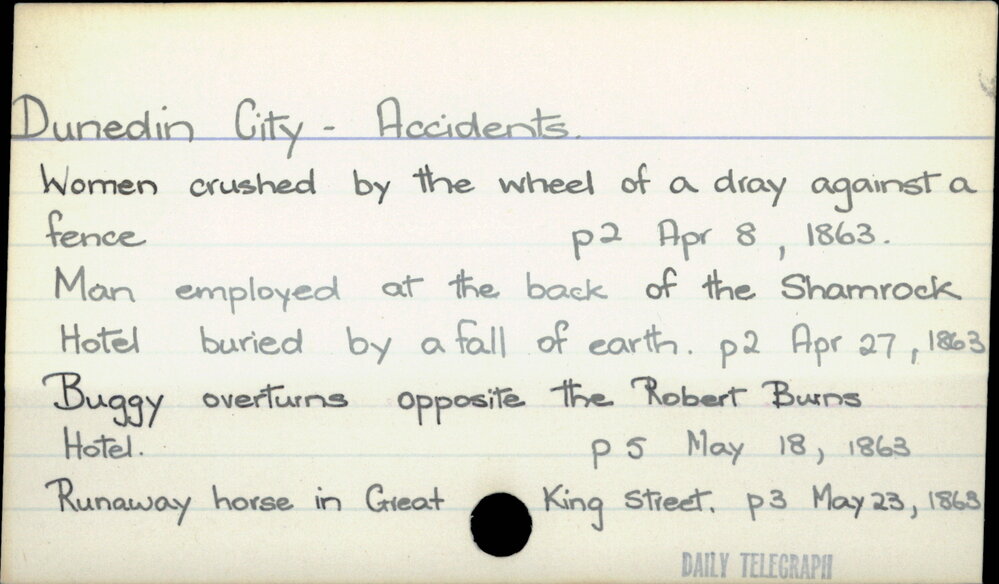 Dunedin City - Accidents.
Women crushed by the wheel of a dray against a
fence p2 Apr 8, 1863.
Man employed at the back of the Shamrock
Hotel buried by a fall of earth. p2 Apr 27, 1863
Buggy overturns opposite the Robert Burns
Hotel. p 5 May 18, 1863
Runaway horse in Great King Street. p3 May 23, 1863
DAILY TELEGRAPH